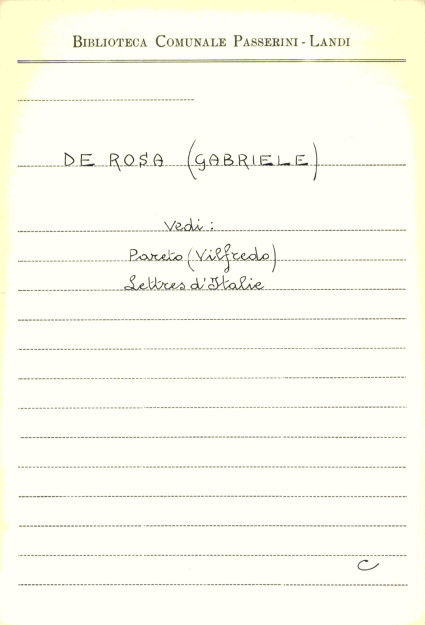 BIBLIOTECA COMUNALE PASSERINI - LANDI
DE ROSA (GABRIELE)
Vedi:
Pareto (Vilfredo)
Lettres d'Italie
C